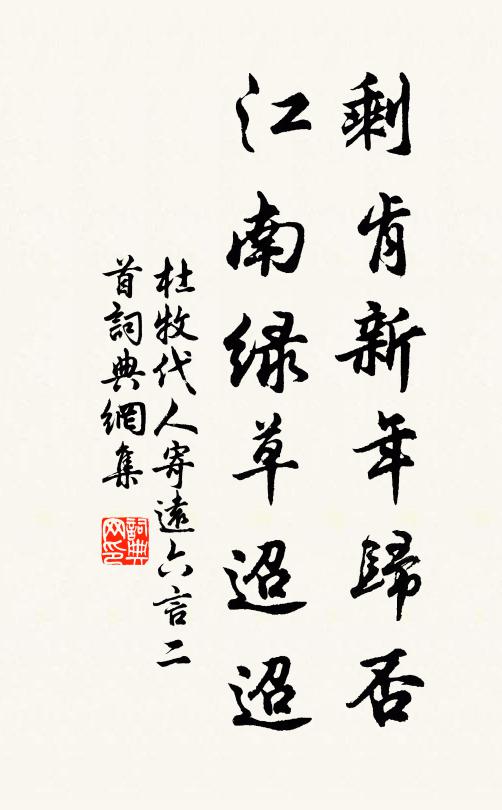 剩肯新年歸否
江南綠草迢迢
杜牧代人寄遠六言二
首詞典網集
詞典
网印